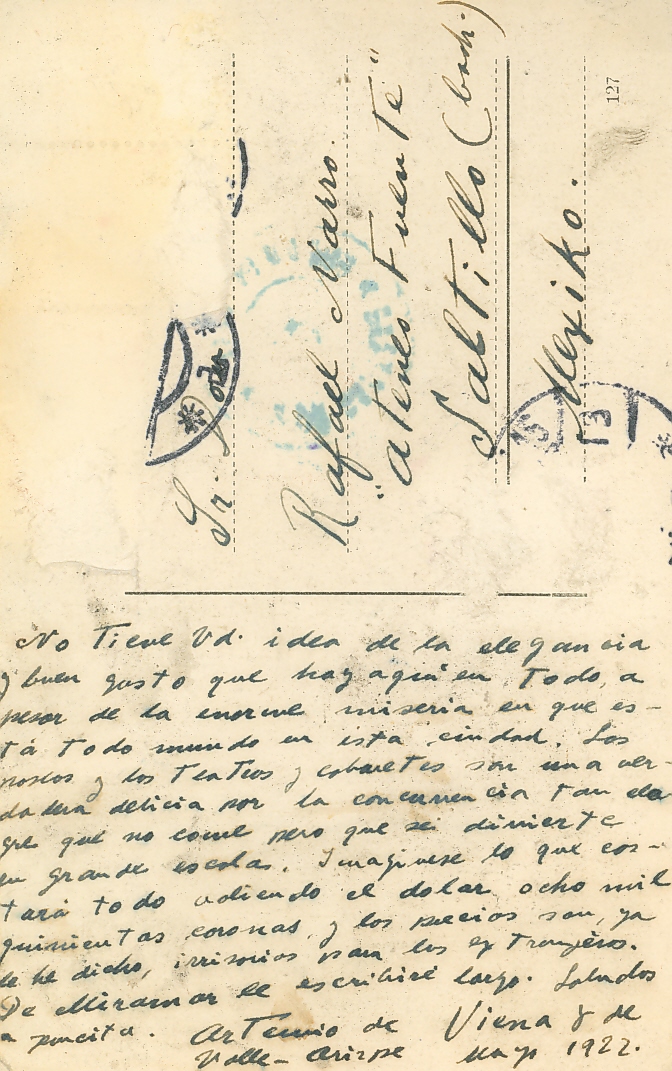 Sr. D.
Rafael Narro.
"Ateneo Fuente"
Saltillo (Coah.)
Mexiko.
127
No tiene Vd. idea de la elegancia
y buen gusto que hay aquí en todo, a
pesar de la enorme miseria en que es-
tá todo mundo en esta ciudad. Los
y los teatros y cabaretes son una ver-
dadera delicia por la concurrencia tan ale
gre que no come pero que se divierte
en grande escala. Imagínese lo que cos-
tará todo valiendo el dolar ocho mil
quinientas coronas y los precios son, ya
le he dicho, irrisorios para los extranjeros.
De Miramar le escribiré largo. Saludos
a
Artemio de
Valle-Arizpe
Viena 8 de
Mayo 1922.